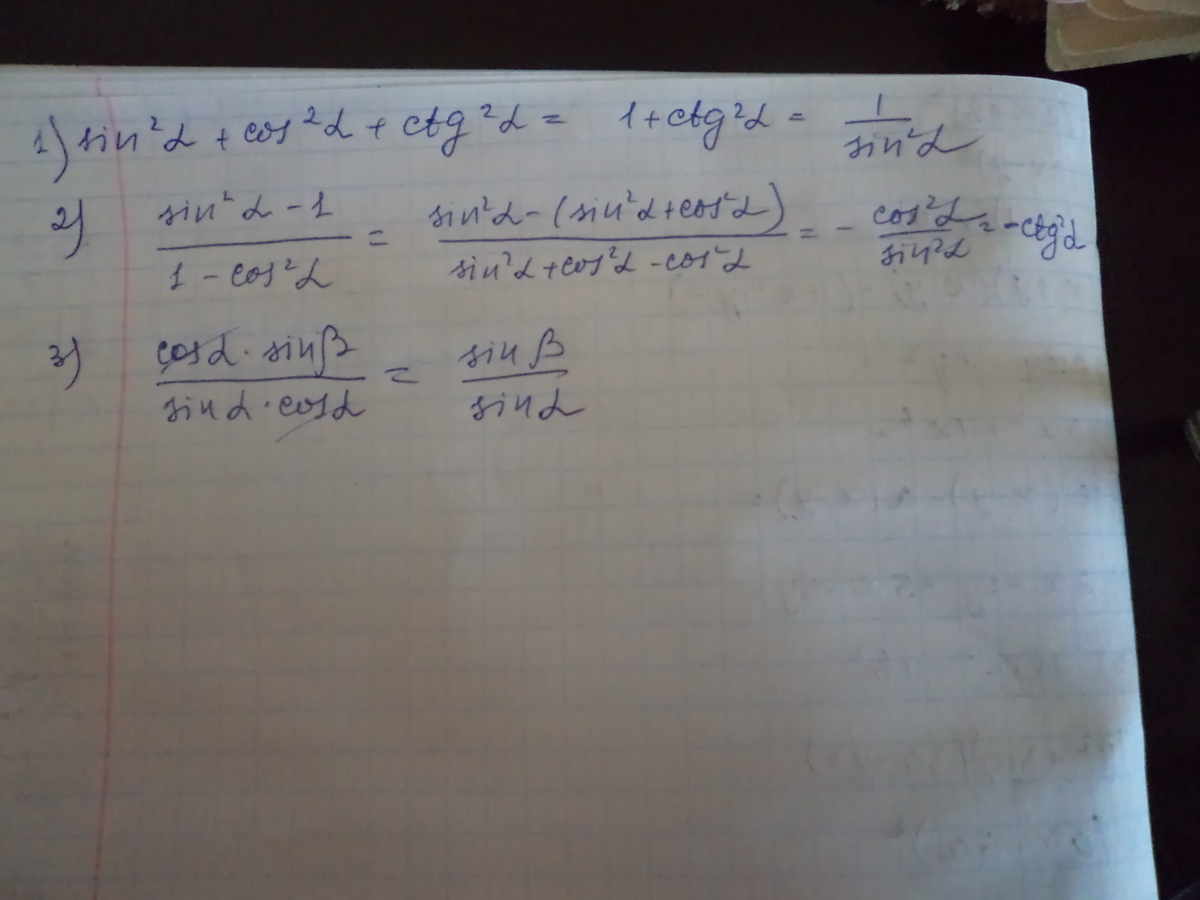 1) sin²α + cos²α + ctg²α = 1 + ctg²α = 1/sin²α
2) (sin²α - 1)/(1 - cos²α) = (sin²α - (sin²α + cos²α))/(sin²α + cos²α - cos²α) = - cos²α/sin²α = - ctg²α
3) (cosα · sinβ)/(sinα · cosα) = sinβ/sinα